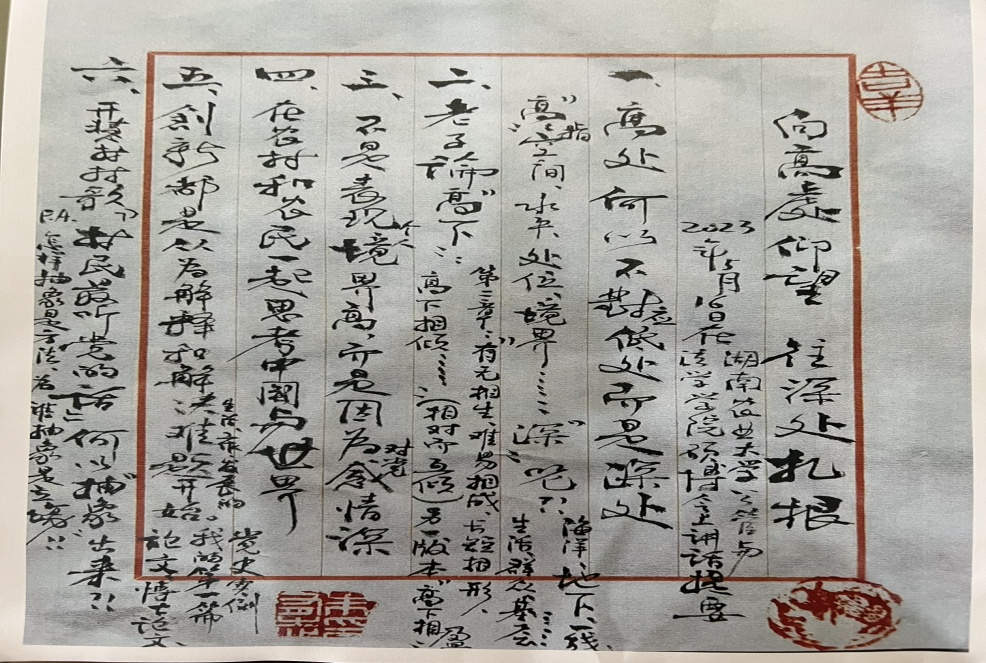 向高处仰望 往深处扎根
2023年5月16日在湖南农业大学公管与法学学院硕博会上讲话提要
一、高处何以不对应低处而是深处
“高”指空间、水平、处位、境界……“深”呢?
海洋、地下、一线、生活、群众、基层……
二、老子论“高下”:
第二章:“有无相生、难易相成、长短相形、
高下相倾……”(相对而互倾)另一版本“高下相盈
三、不是表现个人境界高,而是因为对党感情深
四、在农村和农民一起思考中国与世界
五、创新都是从为解释和解决生活、群众的难题开始。
我的第一篇论文、博士论文、党史实例
六、开发村村歌
“村民最听党的话”何以“抽象”出来?!
P.A.
怎样抽象是方法、为谁抽象是立场!!
吉羊